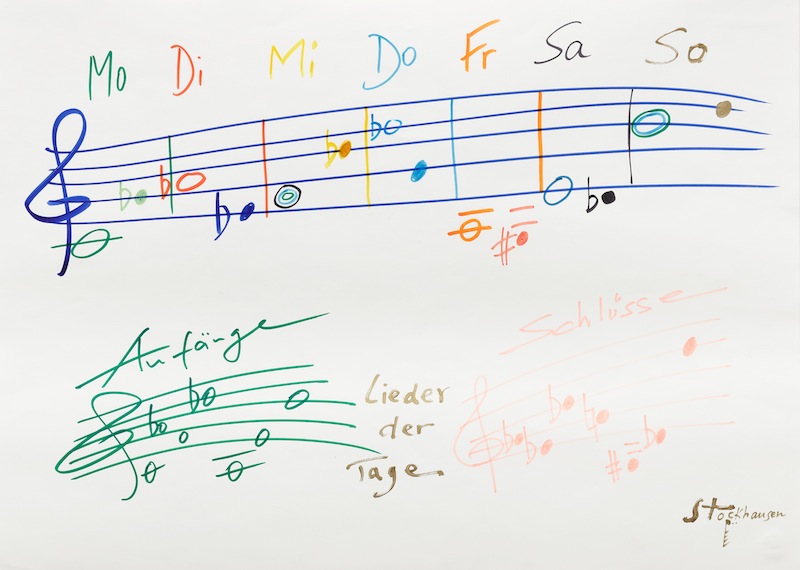 Mo Di Mi Do Fr Sa So
Anfänge
Schlüsse
Lieder
der
Tage
Stockhausen